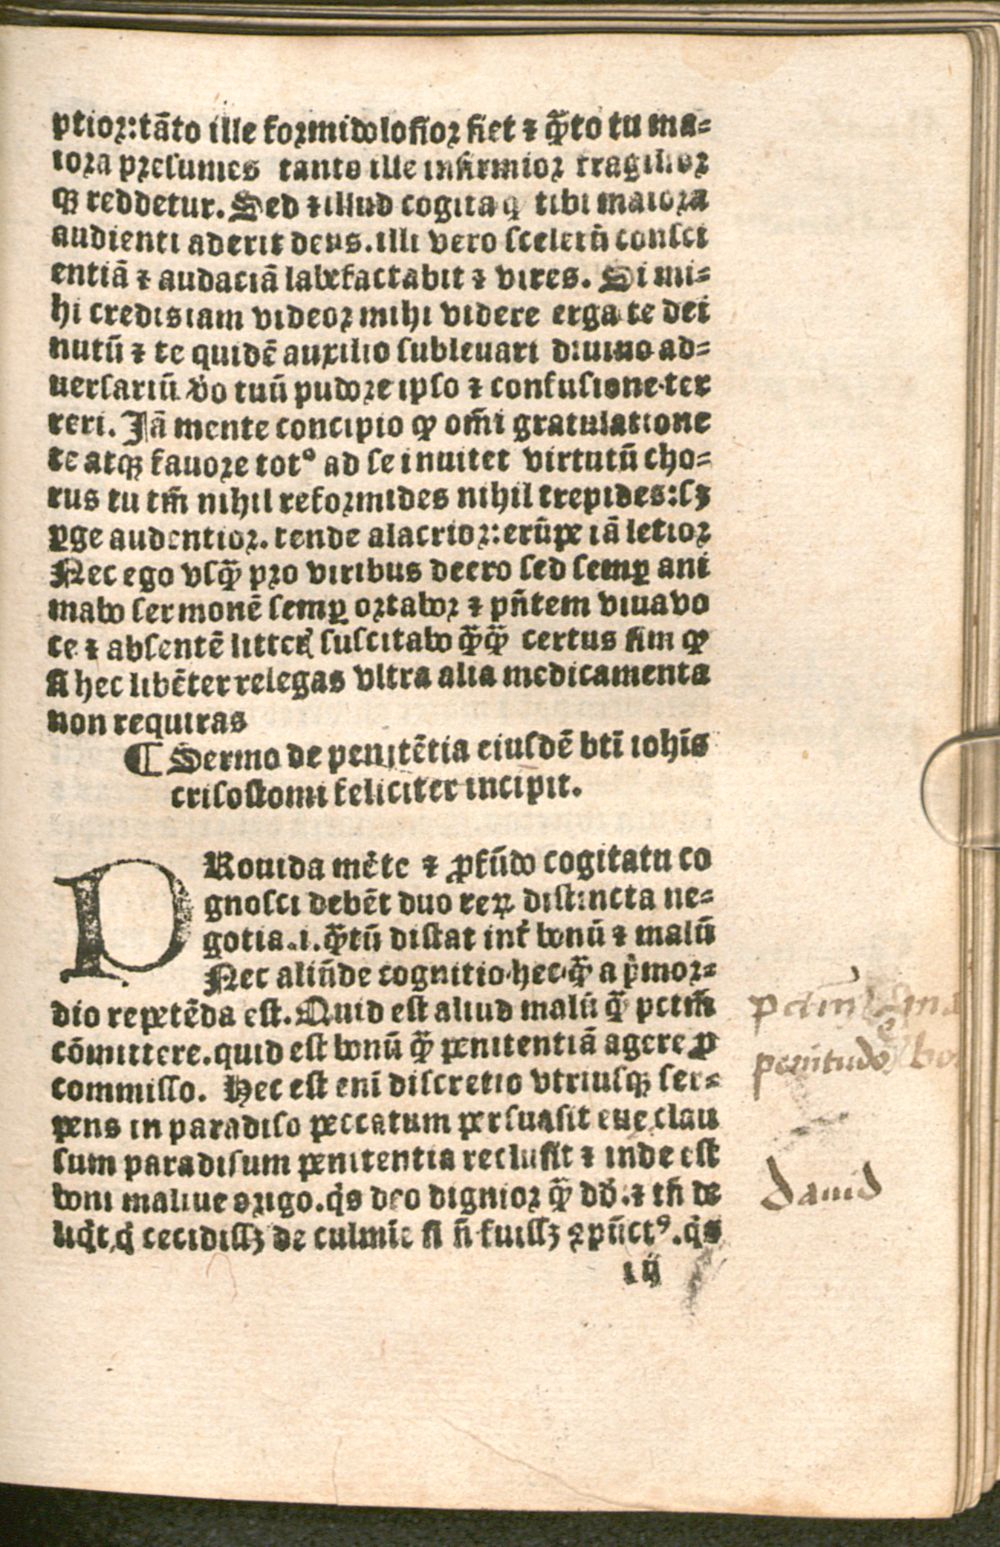 ptior:tãto ille formidolosior fiet ⁊ q̃to tu ma=
iora presumes tanto ille infirmior fragilior
qꝫ reddetur. Sed ⁊ illud cogita q tibi maiora
audienti aderit deus. illi vero scelerũ consci
entiã ⁊ audaciã labefactabit ⁊ vires. Si mi=
hi credis iam videor mihi videre erga te dei
nutũ ⁊ te quidẽ auxilio subleuari diuino ad=
uersariũ v̊o tuũ pudore ipso ⁊ confusione ter
reri. Jã mente concipio ꝙ om̃i gratulatione
te atqꝫ fauore totꝰ ad se inuitet virtutũ cho=
rus tu tm̃ nihil reformides nihil trepides:sꝫ
ꝑge audentior. tende alacrior: erũpe iã letior
Nec ego vsq̃ pro viribus deero sed semꝑ ani
mabo sermonẽ semꝑ ortabor ⁊ pñtem viua vo
ce ⁊ absentẽ litterꝭ suscitabo q̃q̃ certus sim ꝙ
si hec libẽter relegas vltra alia medicamenta
non requiras
¶ Sermo de penitẽtia eiusdẽ bti̅ iohi̅s
crisostomi feliciter incipit.
PRouida mẽte ⁊ ꝓfũdo cogitatu co
gnosci debẽt duo reꝝ distincta ne=
gotia.i. q̃tũ distat inṫ bonũ ⁊ malũ
Nec aliũde cognitio hec q̃ a p̍mor=
dio repetẽda est. Quid est aliud malũ q̃ pctm̃
cõmittere. quid est bonũ q̃ penitentiã agere ꝓ
commisso. Hec est eni̅ discretio vtriusqꝫ ser=
pens in paradiso peccatum persuasit eue clau
sum paradisum penitentia reclusit ⁊ inde est
boni maliue origo. q̍s deo dignior q̃ dd̍. ⁊ tñ de
liq̍t, q̍ cecidissꝫ de culmi̅e si ñ fuissꝫ ꝯpũctꝰ. q̍s
iij
pctm̃
penitudo bo
dauid